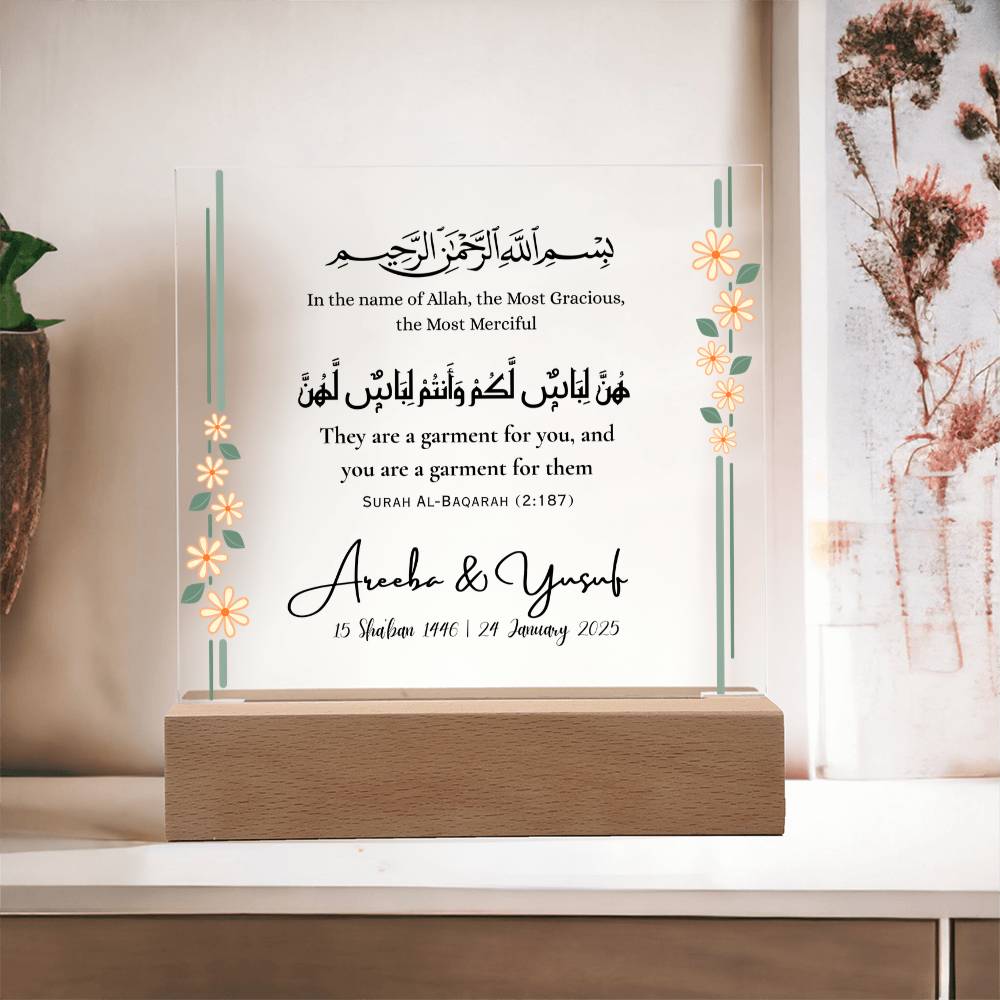 بِسْمِ ٱللَّهِ ٱلرَّحْمَٰنِ ٱلرَّحِيمِ
In the name of Allah, the Most Gracious,
the Most Merciful
هُنَّ لِبَاسٌ لَّكُمْ وَأَنتُمْ لِبَاسٌ لَّهُنَّ
They are a garment for you, and
you are a garment for them
Surah Al-Baqarah (2:187)
Areeba & Yusuf
15 Sha'ban 1446 | 24 January 2025